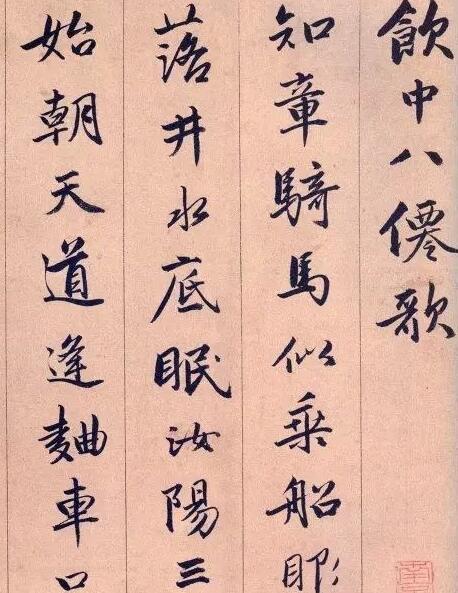 飲中八僊歌
知章騎馬似乗船眼
落井水底眠汝陽三
始朝天道逢麯車口